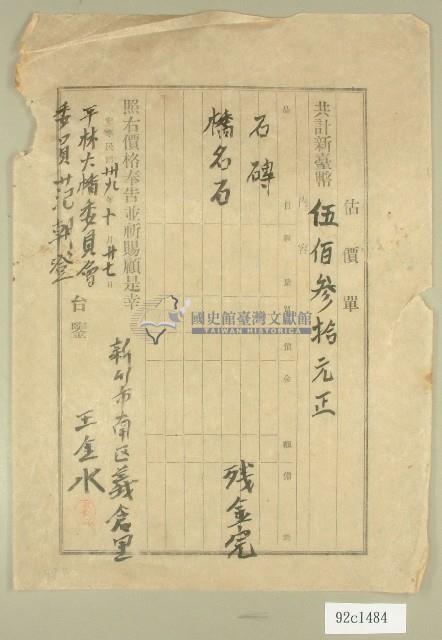 估價單
共計新臺幣 伍佰參拾元正
內容
品 目 數量 單價 金額 備考
石磚
橋名石
残金完
照右價格奉告並祈賜顧是幸
中華民國卅九年十月廿七日
新竹市南区義倉里
王金水
平林大橋委員會
委員 范朝登 台鑒
國史館臺灣文獻館
TAIWAN HISTORICA
92c1484